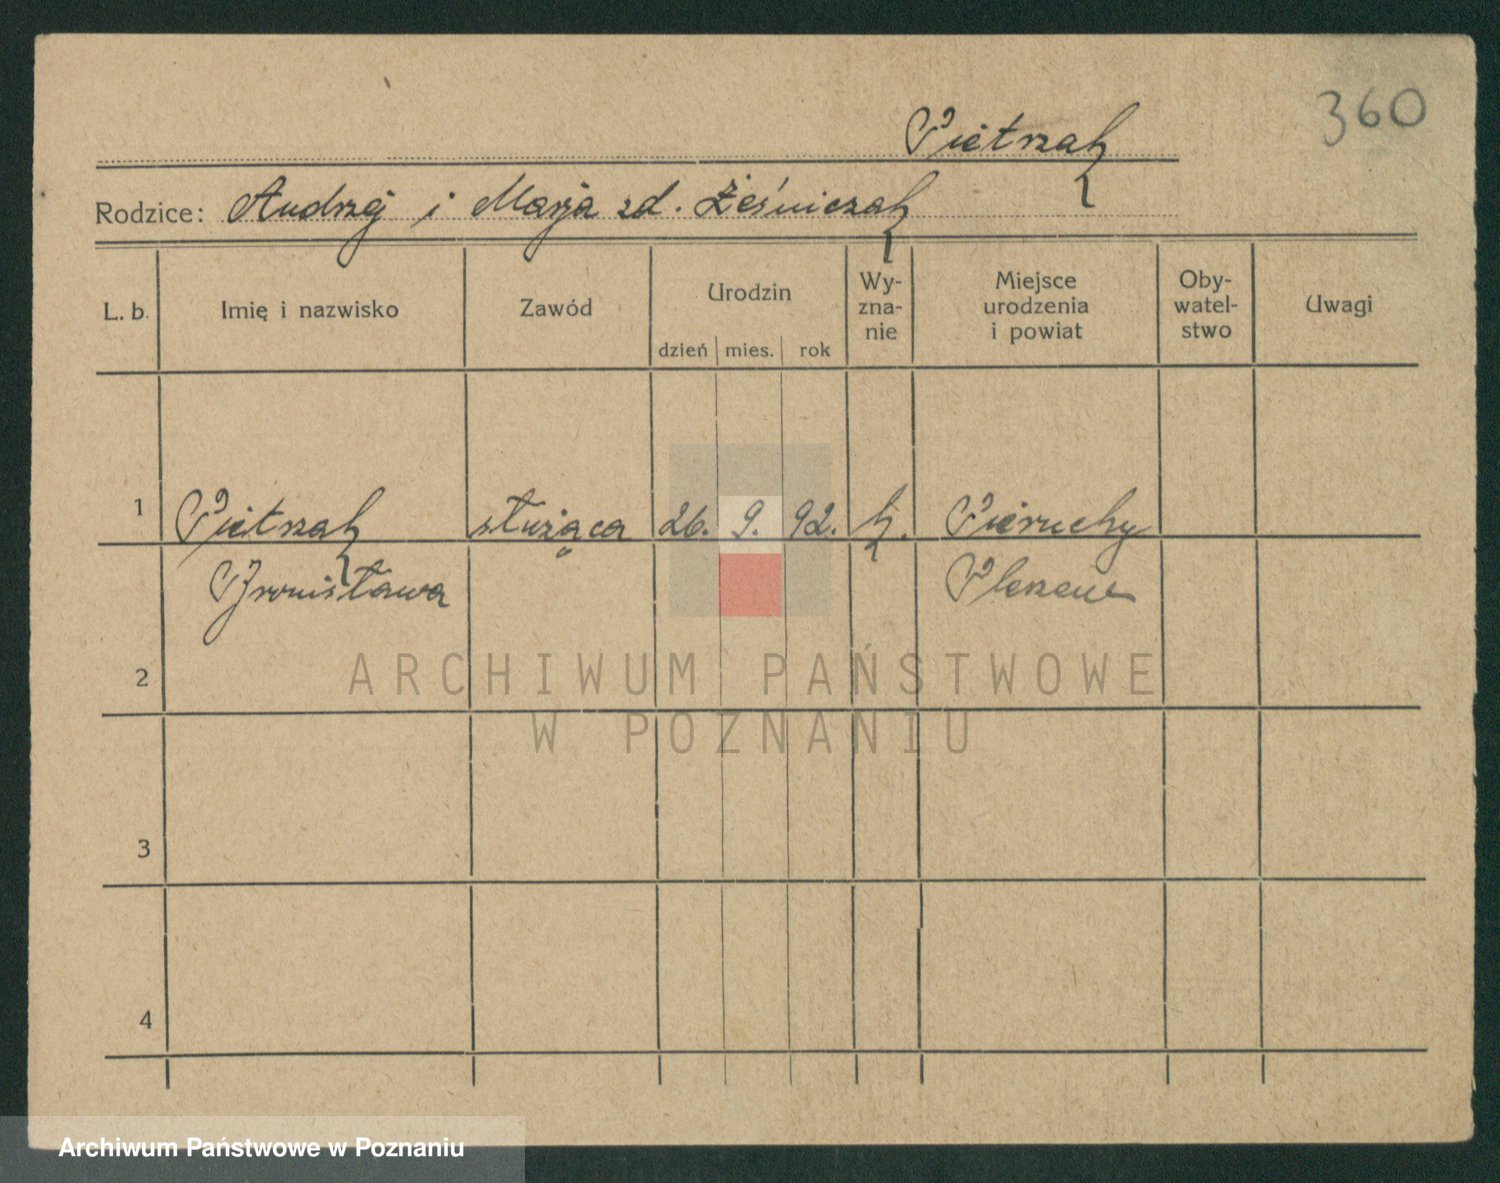 360
Pietrzak
Rodzice: Andrzej i Marja zd. Leśniczak
L. b. Imię i nazwisko Zawód Urodzin dzień mies. rok Wy- zna- nie Miejsce urodzenia i powiat Oby- watel- stwo Uwagi
1 Pietrzak służąca 26. 9. 92. k. Pieruchy
Bronisława Pleszew
2
ARCHIWUM PAŃSTWOWE
W POZNANIU
3
4
Archiwum Państwowe w Poznaniu